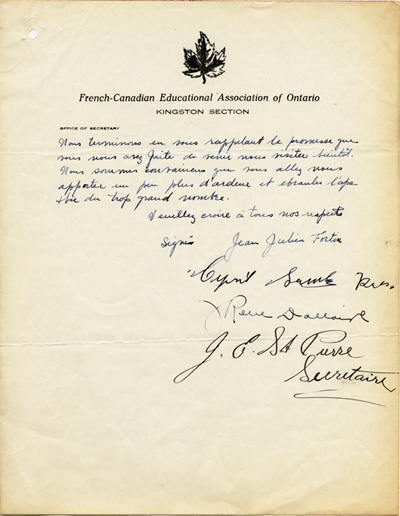 French-Canadian Educational Association of Ontario
KINGSTON SECTION
OFFICE OF SECRETARY
Nous terminons en vous rappelant la promesse que
vous nous avez faite de venir nous visiter bientôt.
Nous sommes convaincus que vous allez nous
apporter un peu plus d'ardeur et ébranler l'apa-
thie du trop grand nombre.
Veuillez croire à tous nos respects
Signés Jean Julien Fortin
Pres.
René Dallaire
J. E. St Pierre
Secretaire